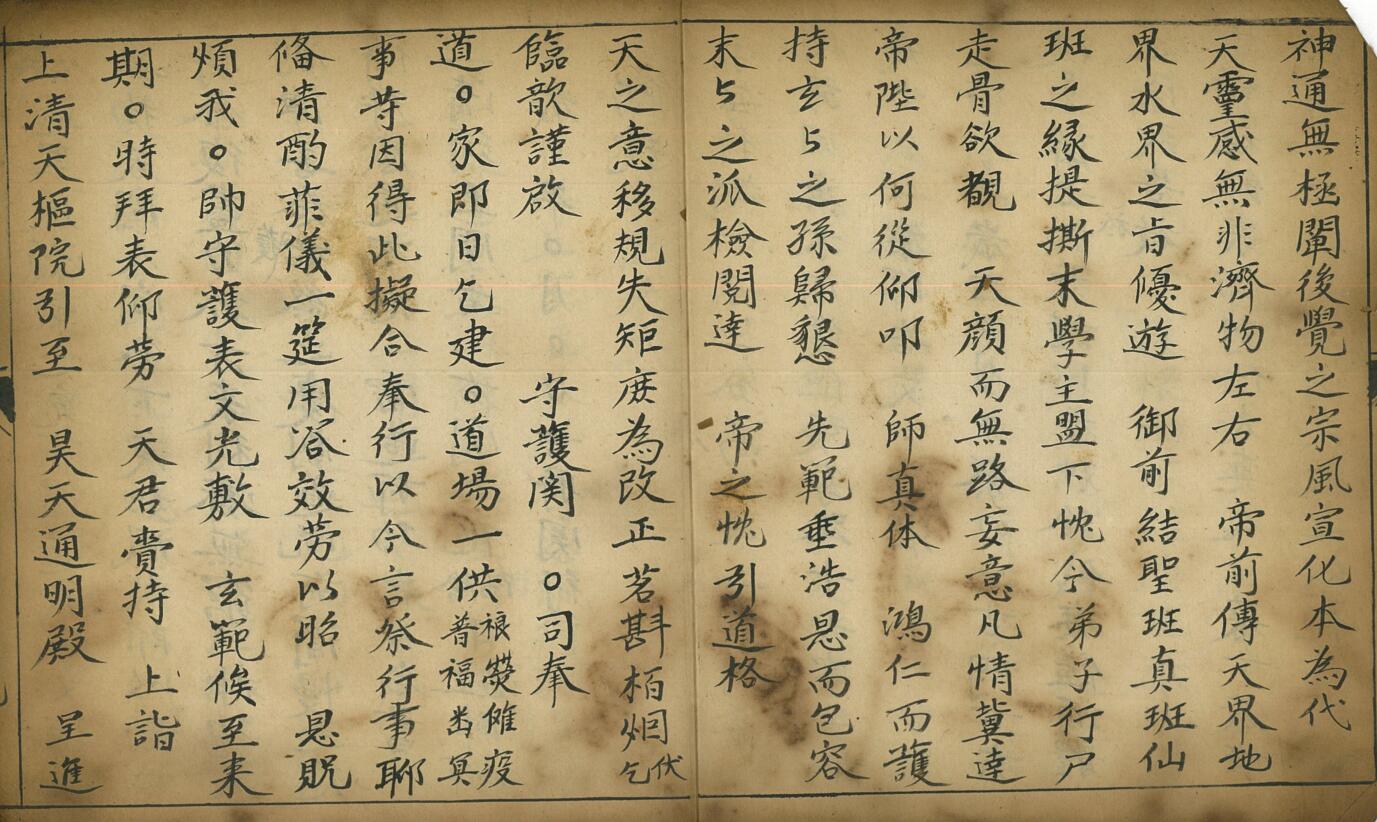 神通無極闡後覺之宗風宣化本為代
天靈感無非濟物左右　帝前傳天界地
界水界之旨優遊　御前結聖班真班仙
班之緣提撕末學主盟下忱今弟子行尸
走骨欲覩　天顔而無路妄意凡情冀達
帝陛以何從仰叩　師真体　鴻仁而護
持玄㇉之孫歸懇　先範垂浩恩而包容
末㇉之派檢閱達　帝之忱引道格
天之意移規失矩庶為改正茗斟栢烟伏乞
臨歆謹啟　守護関　○司奉
道○家即日乞建○道場一供禳熒傩疫普福幽冥
事茡因得此擬合奉行以今言祭行事聊
俻清酌菲儀一筵用浴效劳以昭　恩貺
煩我○帥守護表文光敷　玄範候至来
期○時拜表仰劳　天君賫持　上詣
上清天樞院引至　昊天通明殿　呈進